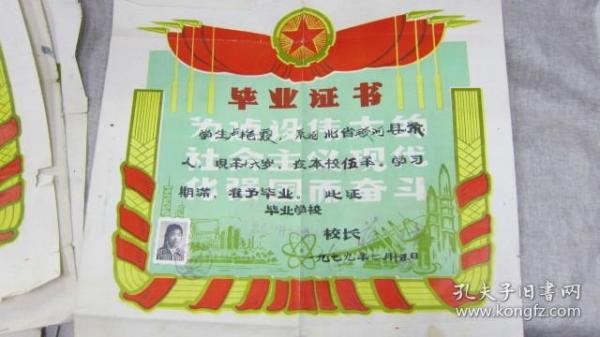 毕业证书
学生卢艳霞，系河北省香河县
人，现年六岁，在本校伍年，学习
期满，准予毕业。此证
毕业学校
校长
一九七九年
为建设伟大的
社会主义现代
化强国而奋斗
孔夫子旧书网
www.kongfz.com